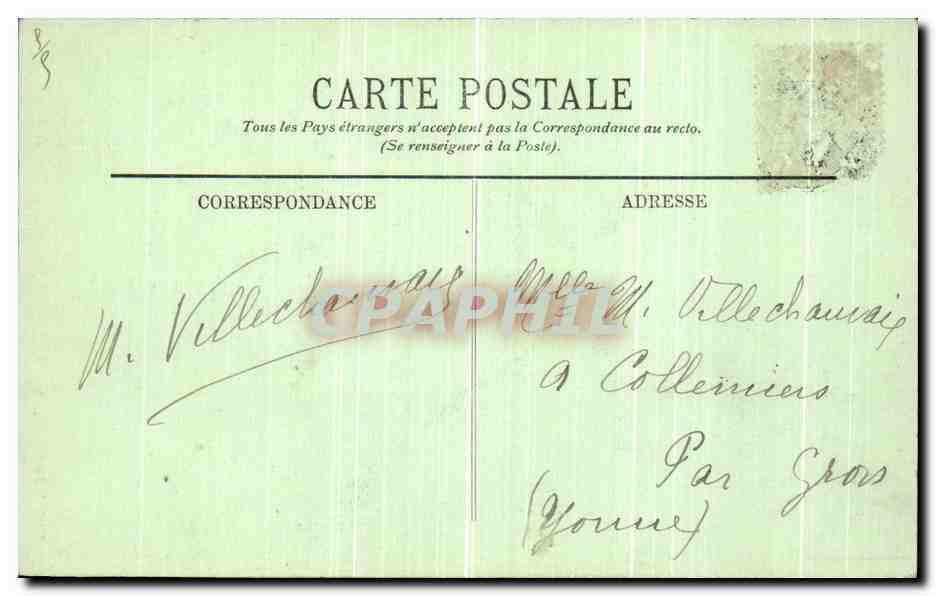 CARTE POSTALE
Tous les Pays étrangers n'acceptent pas la Correspondance au recto.
(Se renseigner à la Poste).
CORRESPONDANCE
ADRESSE
M. Villechauvaix
Melle M. Villechauvaix
a Collemiers
Par Gron
(Yonne)
CPAPHIL